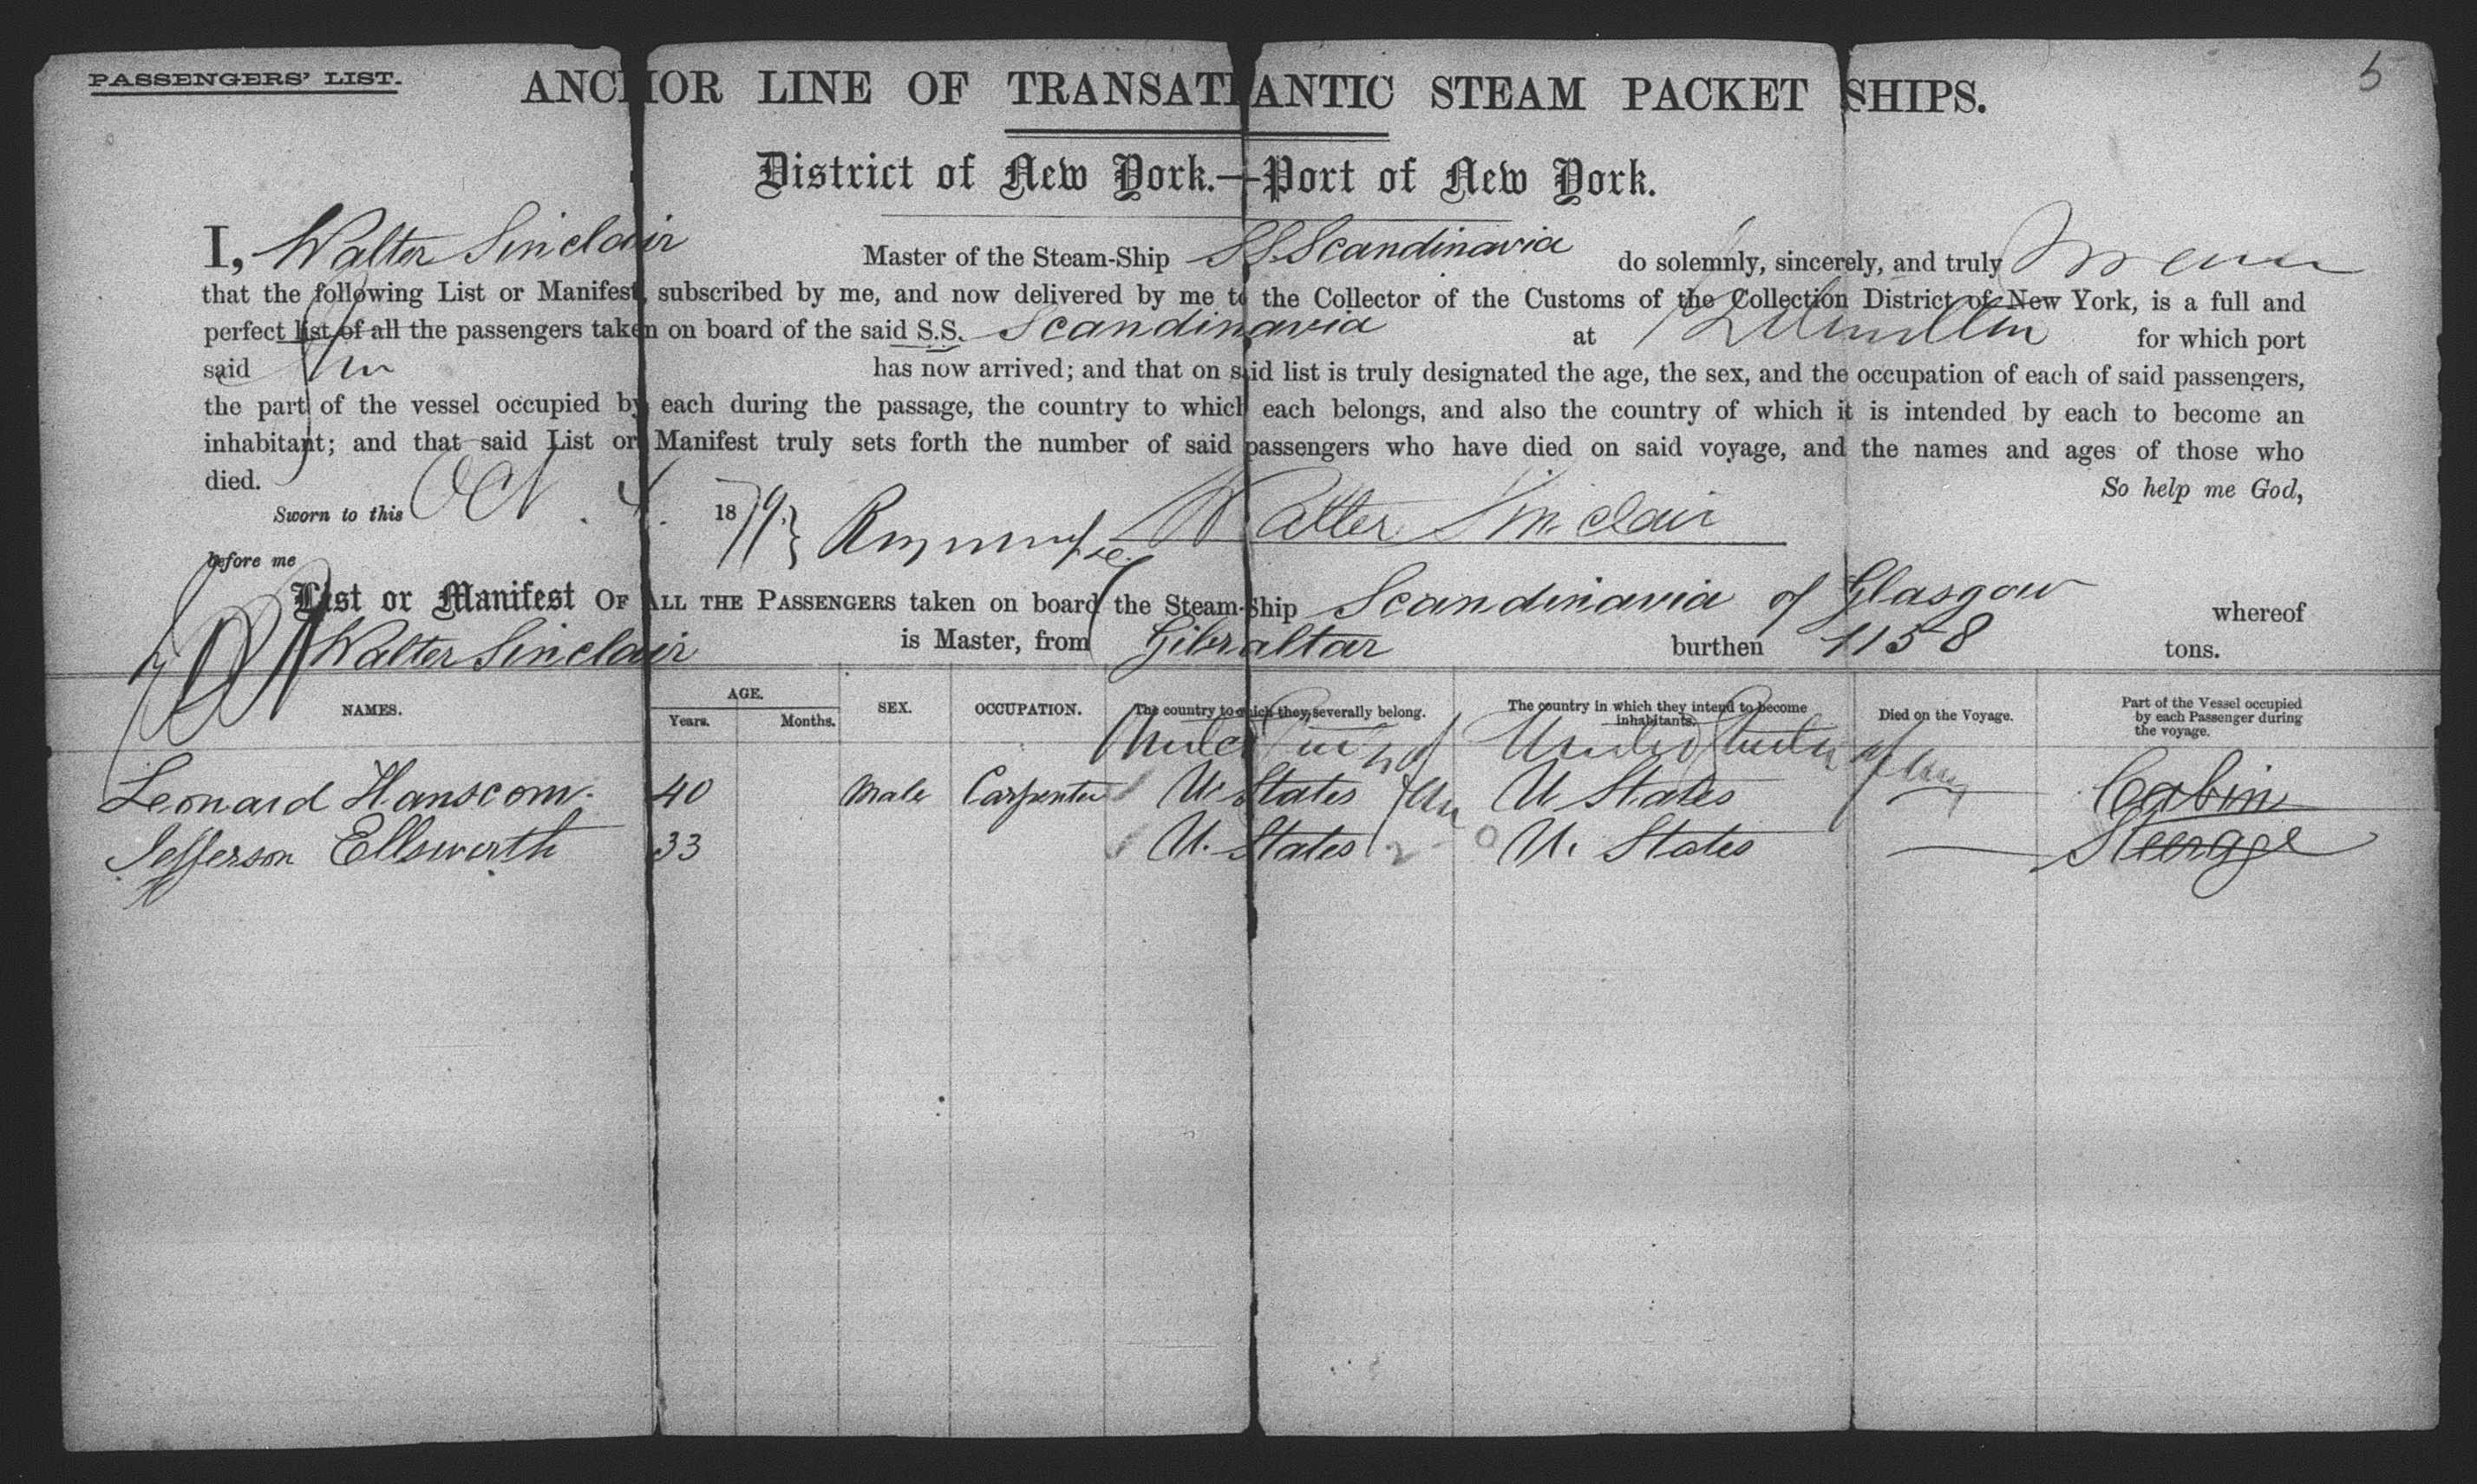 PASSENGERS' LIST.
5
ANCHOR LINE OF TRANSATLANTIC STEAM PACKET SHIPS.
District of New York.—Port of New York.
I, Walter Sinclair Master of the Steam-Ship SS Scandinavia do solemnly, sincerely, and truly Swear
that the following List or Manifest, subscribed by me, and now delivered by me to the Collector of the Customs of the Collection District of New York, is a full and
perfect list of all the passengers taken on board of the said S.S. Scandinavia at for which port
said has now arrived; and that on said list is truly designated the age, the sex, and the occupation of each of said passengers,
the part of the vessel occupied by each during the passage, the country to which each belongs, and also the country of which it is intended by each to become an
inhabitant; and that said List or Manifest truly sets forth the number of said passengers who have died on said voyage, and the names and ages of those who
died.
So help me God,
Sworn to this Oct. 4. 1879 Walter Sinclair
before me
List or Manifest OF ALL THE PASSENGERS taken on board the Steam-Ship Scandinavia of Glasgow whereof
Walter Sinclair is Master, from Gibraltar burthen 1158 tons.
NAMES. AGE. Years. Months. SEX. OCCUPATION. The country to which they severally belong. The country in which they intend to become inhabitants. Died on the Voyage. Part of the Vessel occupied by each Passenger during the voyage.
United States of
Leonard Hanscom. 40 Male Carpenter U. States U States — Cabin
Jefferson Ellsworth 33 U. States U. States — Steerage